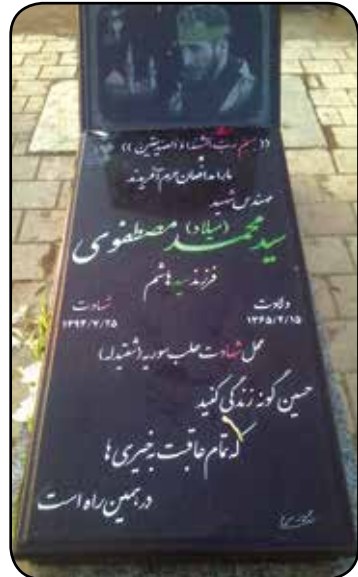 ((بسم رب الشهداء والصدیقین))
ما را مدافعان حرم آفریدند
مهندس شهید
سید محمد (میلاد) مصطفوی
فرزند سید هاشم
ولادت
۱۳۶۵/۲/۱۵
شهادت
۱۳۹۴/۷/۲۵
محل شهادت حلب سوریه (شغیدله)
حسین گونه زندگی کنید
که تمام عاقبت بخیری ها
در همین راه است